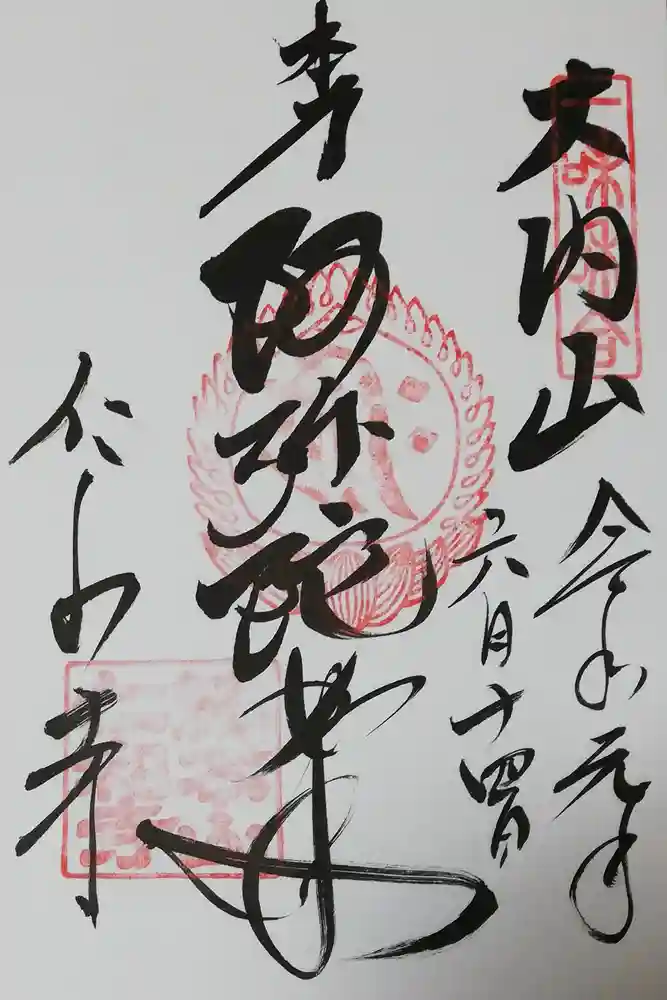 大内山
一味和合
令和元年
六月十四日
阿弥陀如来
仁和寺